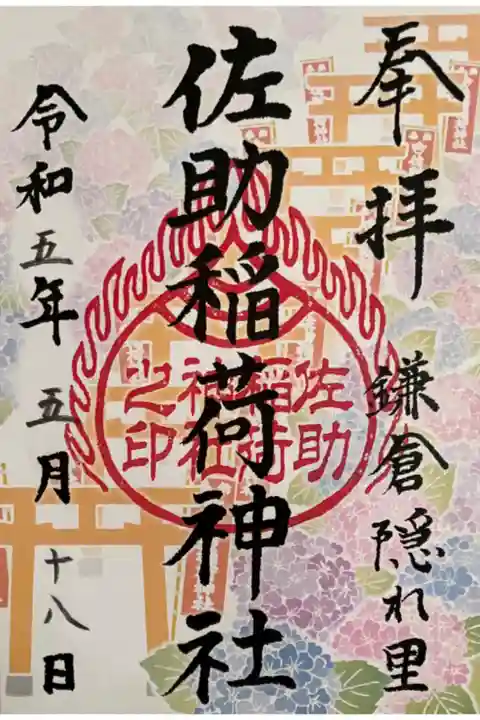 奉拝
鎌倉隠れ里
佐助稲荷神社
佐助
稲荷
神社
之印
令和五年 五月 十八日